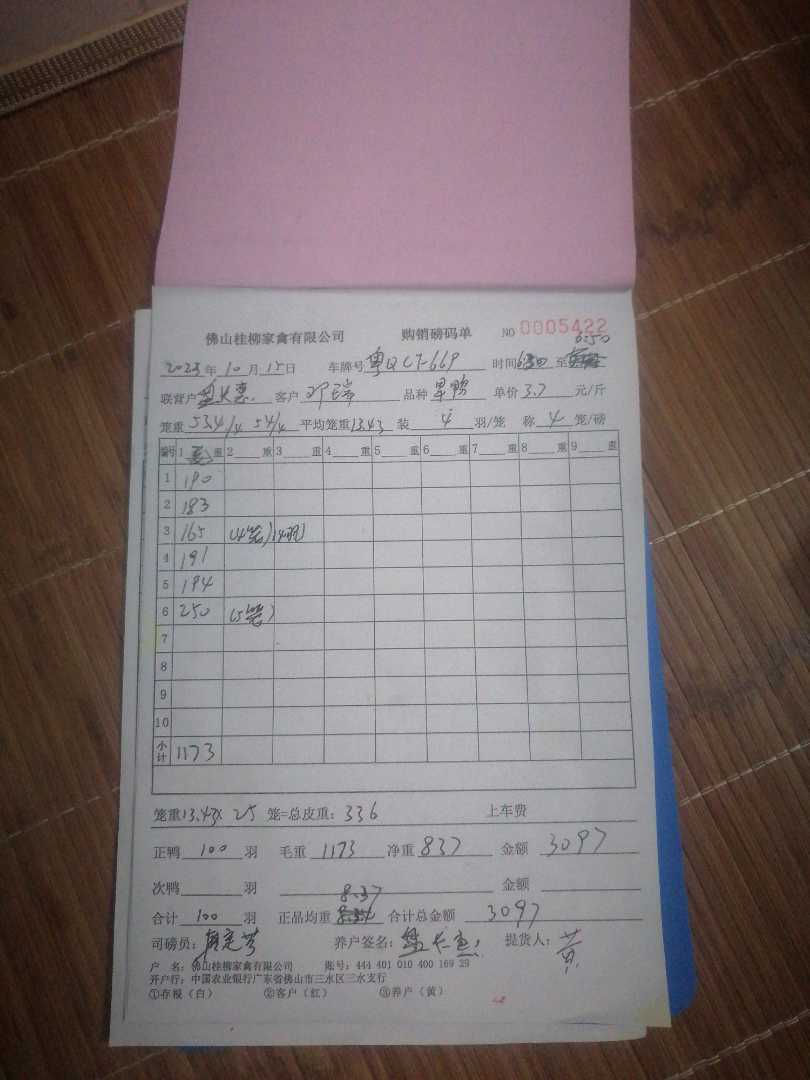 佛山桂柳家禽有限公司 购销磅码单 NO 0005422
6:50
2023年10月15日 车牌号 粤QCT-669 时间 至
联营户 客户 邓瑞 品种 单价 3.7 元/斤
笼重 53.4/4 54/4 平均笼重 13.43 装 4 羽/笼 称 4 笼/磅
编号 1 重 2 重 3 重 4 重 5 重 6 重 7 重 8 重 9 重
1 190
2 183
3 165 (4笼)14羽)
4 191
5 194
6 250 (5笼)
7
8
9
10
小计 1173
笼重 13.43 x 25 笼=总皮重: 336 上车费
正鸭 100 羽 毛重 1173 净重 837 金额 3097
次鸭 羽 金额
8.37
合计 100 羽 正品均重 合计总金额 3097
司磅员: 养户签名: 提货人: 黄
户 名: 佛山桂柳家禽有限公司 账号: 444 401 010 400 169 29
开户行: 中国农业银行广东省佛山市三水区三水支行
①存根(白) ②客户(红) ③养户(黄)